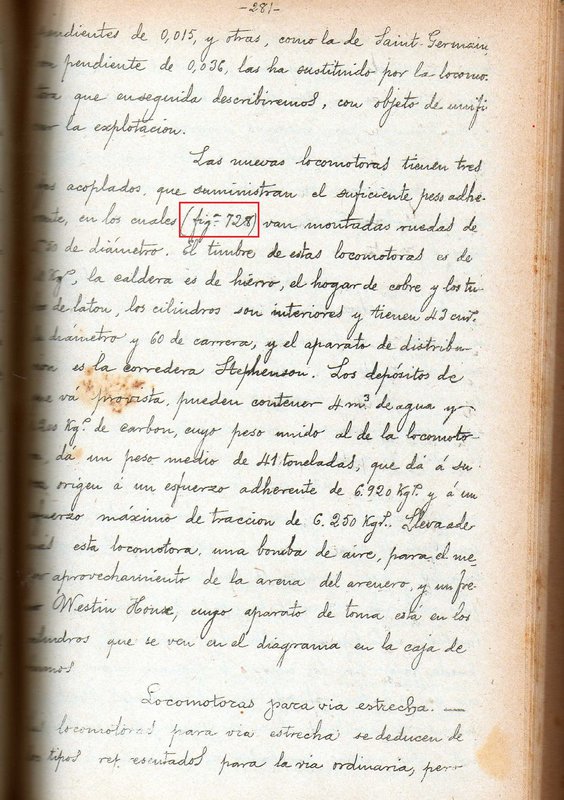 -281-
dientes de 0,015, y otras, como la de Saint-Germain,
pendiente de 0,036, las ha sustituido por la locomo-
que enseguida describiremos, con objeto de unifi
la explotación.
Las nuevas locomotoras tienen tres
acoplados, que suministran el suficiente peso adhe-
en los cuales (figª 728) van montadas ruedas de
de diámetro. El timbre de estas locomotoras es de
Kgs, la caldera es de hierro, el hogar de cobre y los tu-
de laton, los cilindros son interiores y tienen 43 cm.
diametro y 60 de carrera, y el aparato de distribu-
es la corredera Stephenson. Los depósitos de
vá provista, pueden contener 4 m³ de agua y
Kgs. de carbon, cuyo peso unido al de la locomoto-
dá un peso medio de 41 toneladas, que dá á su
origen á un esfuerzo adherente de 6.920 Kgs. y á un
máximo de traccion de 6.250 Kgs. Lleva ade
esta locomotora, una bomba de aire, para el me-
aprovechamiento de la arena del arenero, y un fre-
Westin House, cuyo aparato de toma está en los
cilindros que se ven en el diagrama en la caja de
Locomotoras para via estrecha.—
locomotoras para via estrecha se deducen de
tipos representados para la via ordinaria, pero